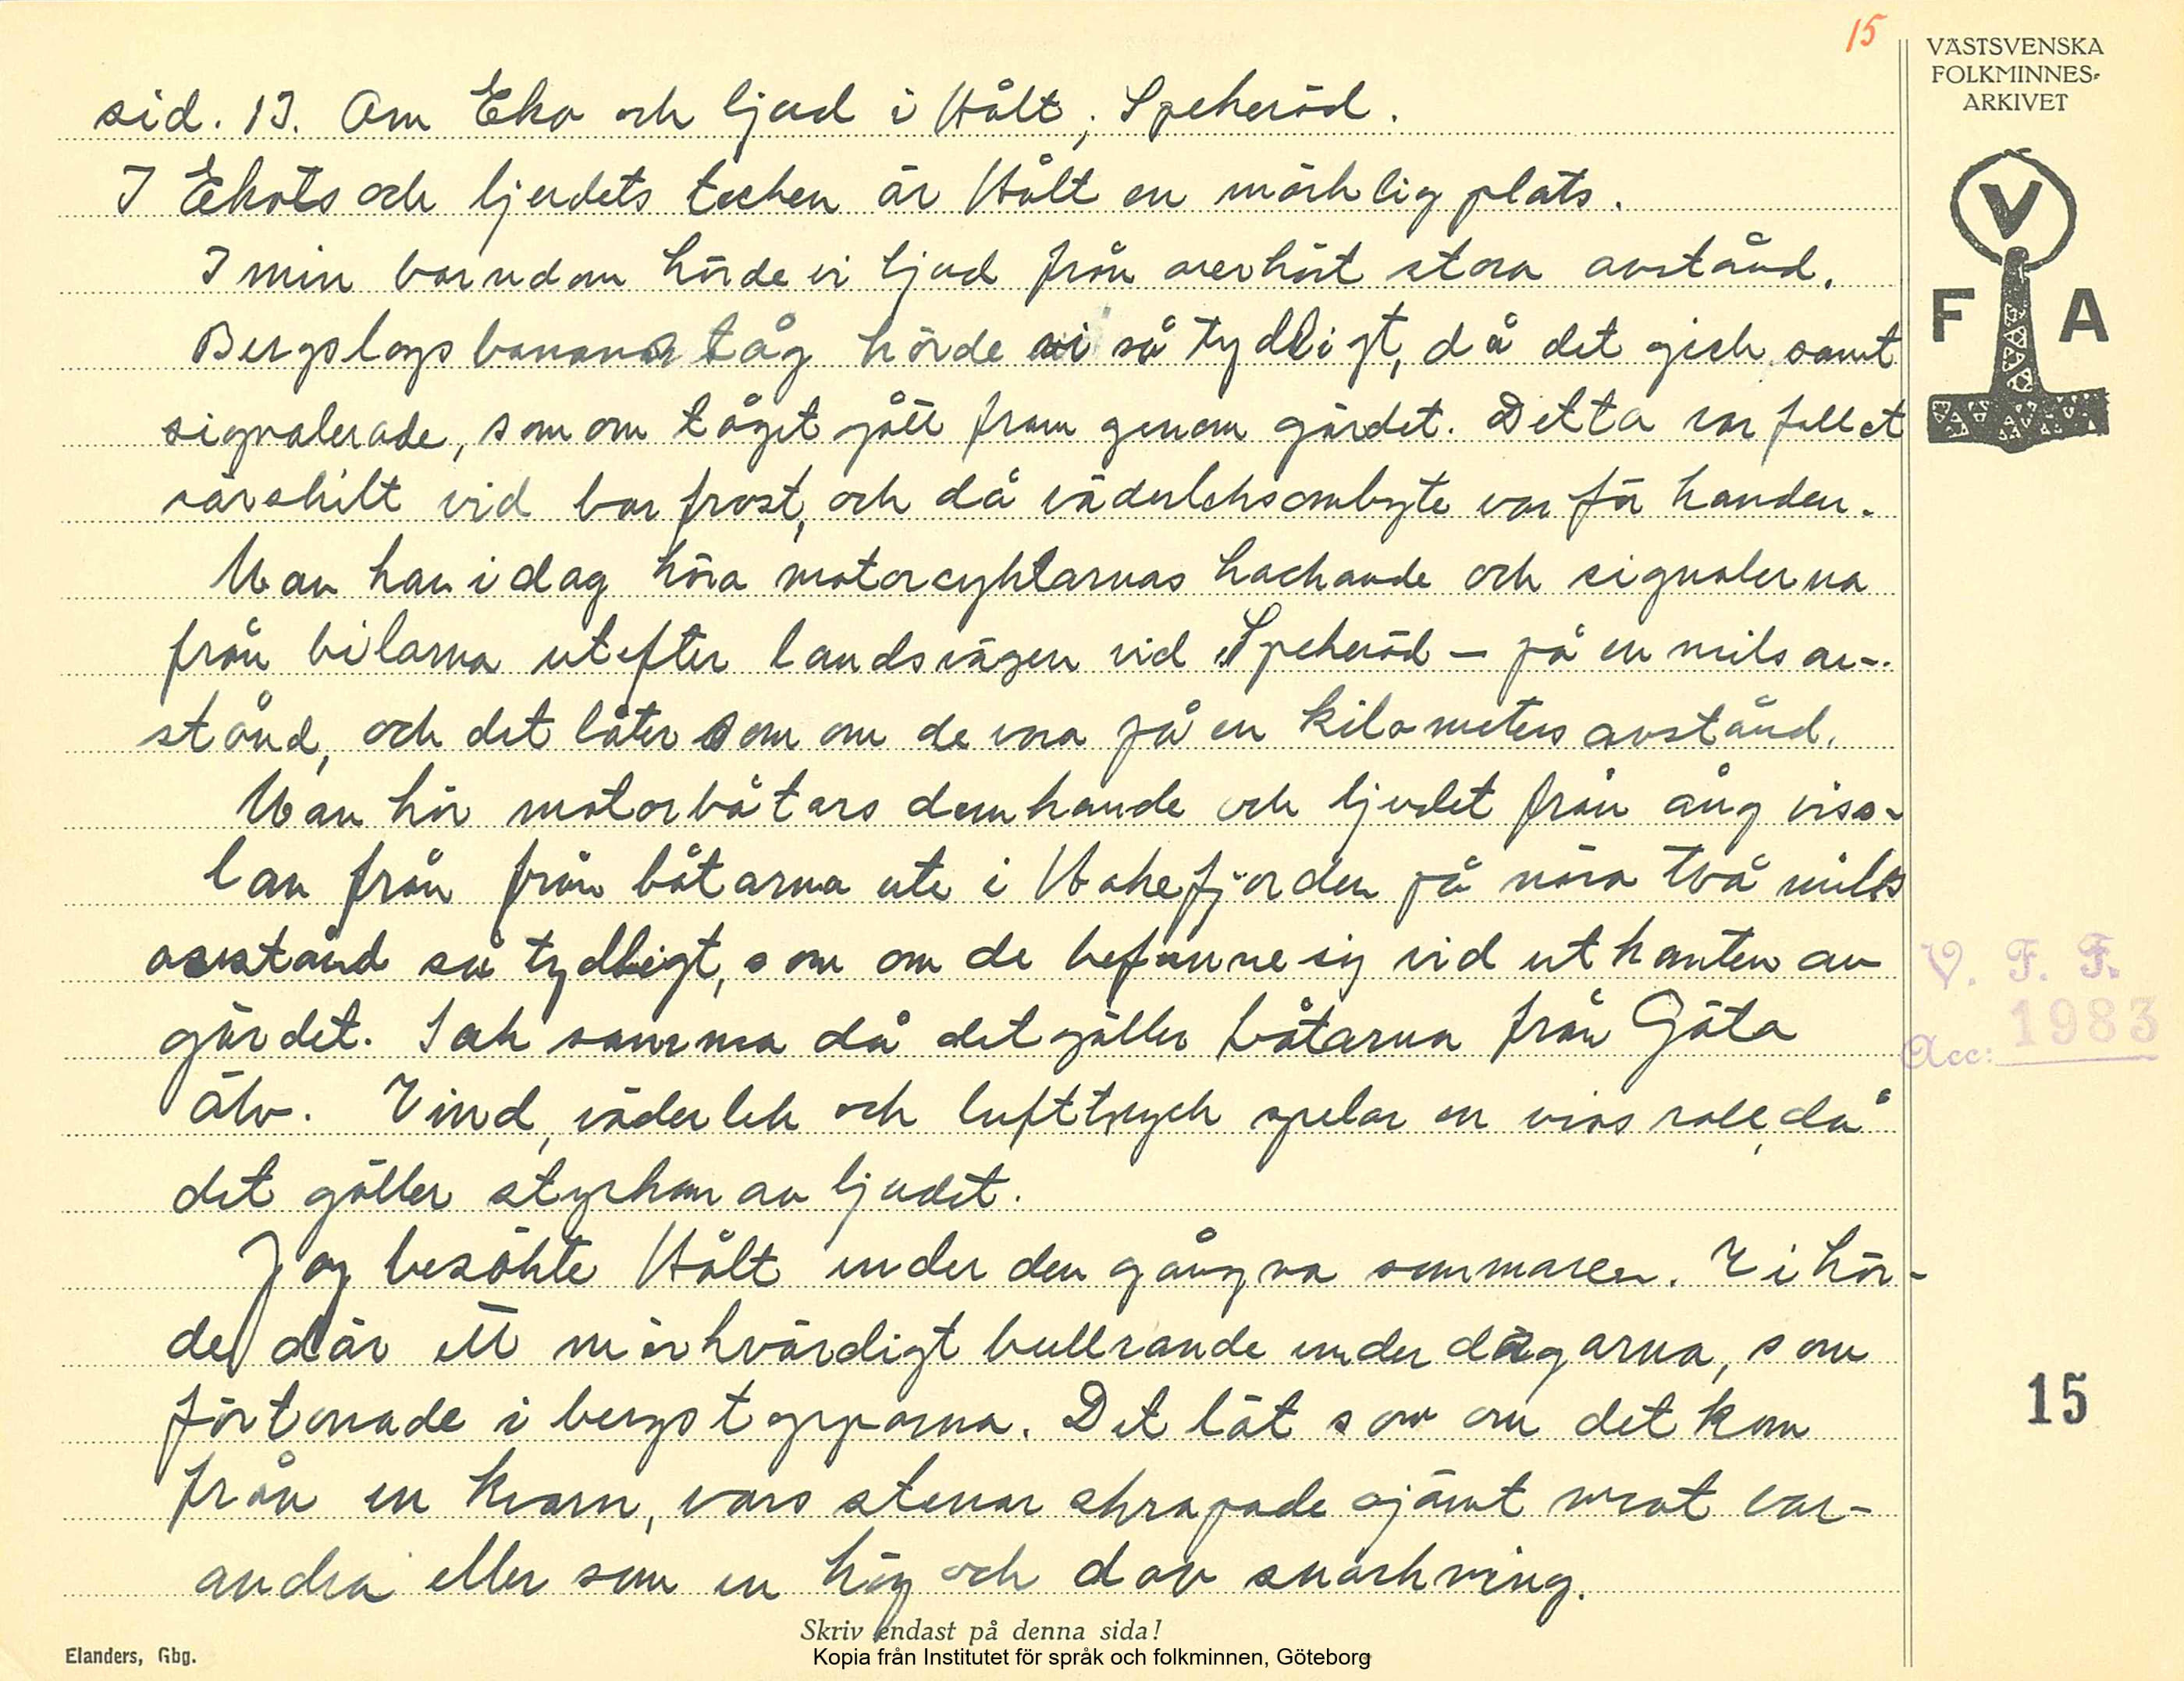 15
VÄSTSVENSKA
FOLKMINNES-
ARKIVET
V
F A
sid. 13. Om Eko och ljud i Hålt, Spekeröd.
I Ekots och ljudets tecken är Hålt en märklig plats.
I min barndom hörde vi ljud från oerhört stora avstånd.
Bergslagsbanans tåg hörde vi så tydligt, då det gick samt
signalerade, som om tåget gått fram genom gärdet. Detta var fallet
särskilt vid barfrost, och då väderleksombyte var för handen.
Man kan idag höra motorcyklarnas hackande och signalerna
från bilarna utefter landsvägen vid Spekeröd – på en mils av-
stånd, och det låter som om de vora på en kilometers avstånd.
Man hör motorbåtars dunkande och ljudet från ång viss-
lan från från båtarna ute i Hakefjorden på nära två mils
avstånd så tydligt, som om de befunne sig vid utkanten av
gärdet. Sak samma då det gäller båtarna från Göta
älv. Vind, väderlek och lufttryck spelar en viss roll, då
det gäller styrkan av ljudet.
Jag besökte Hålt under den gångna sommaren. Vi hör-
de där ett märkvärdigt bullrande under dagarna, som
förtonade i bergstopparna. Det lät som om det kom
från en kvarn, vars stenar skrapade ojämt mot var-
andra eller som en hög och dov snarkning.
V. F. F.
Acc: 1983
15
Skriv endast på denna sida!
Elanders, Gbg.
Kopia från Institutet för språk och folkminnen, Göteborg